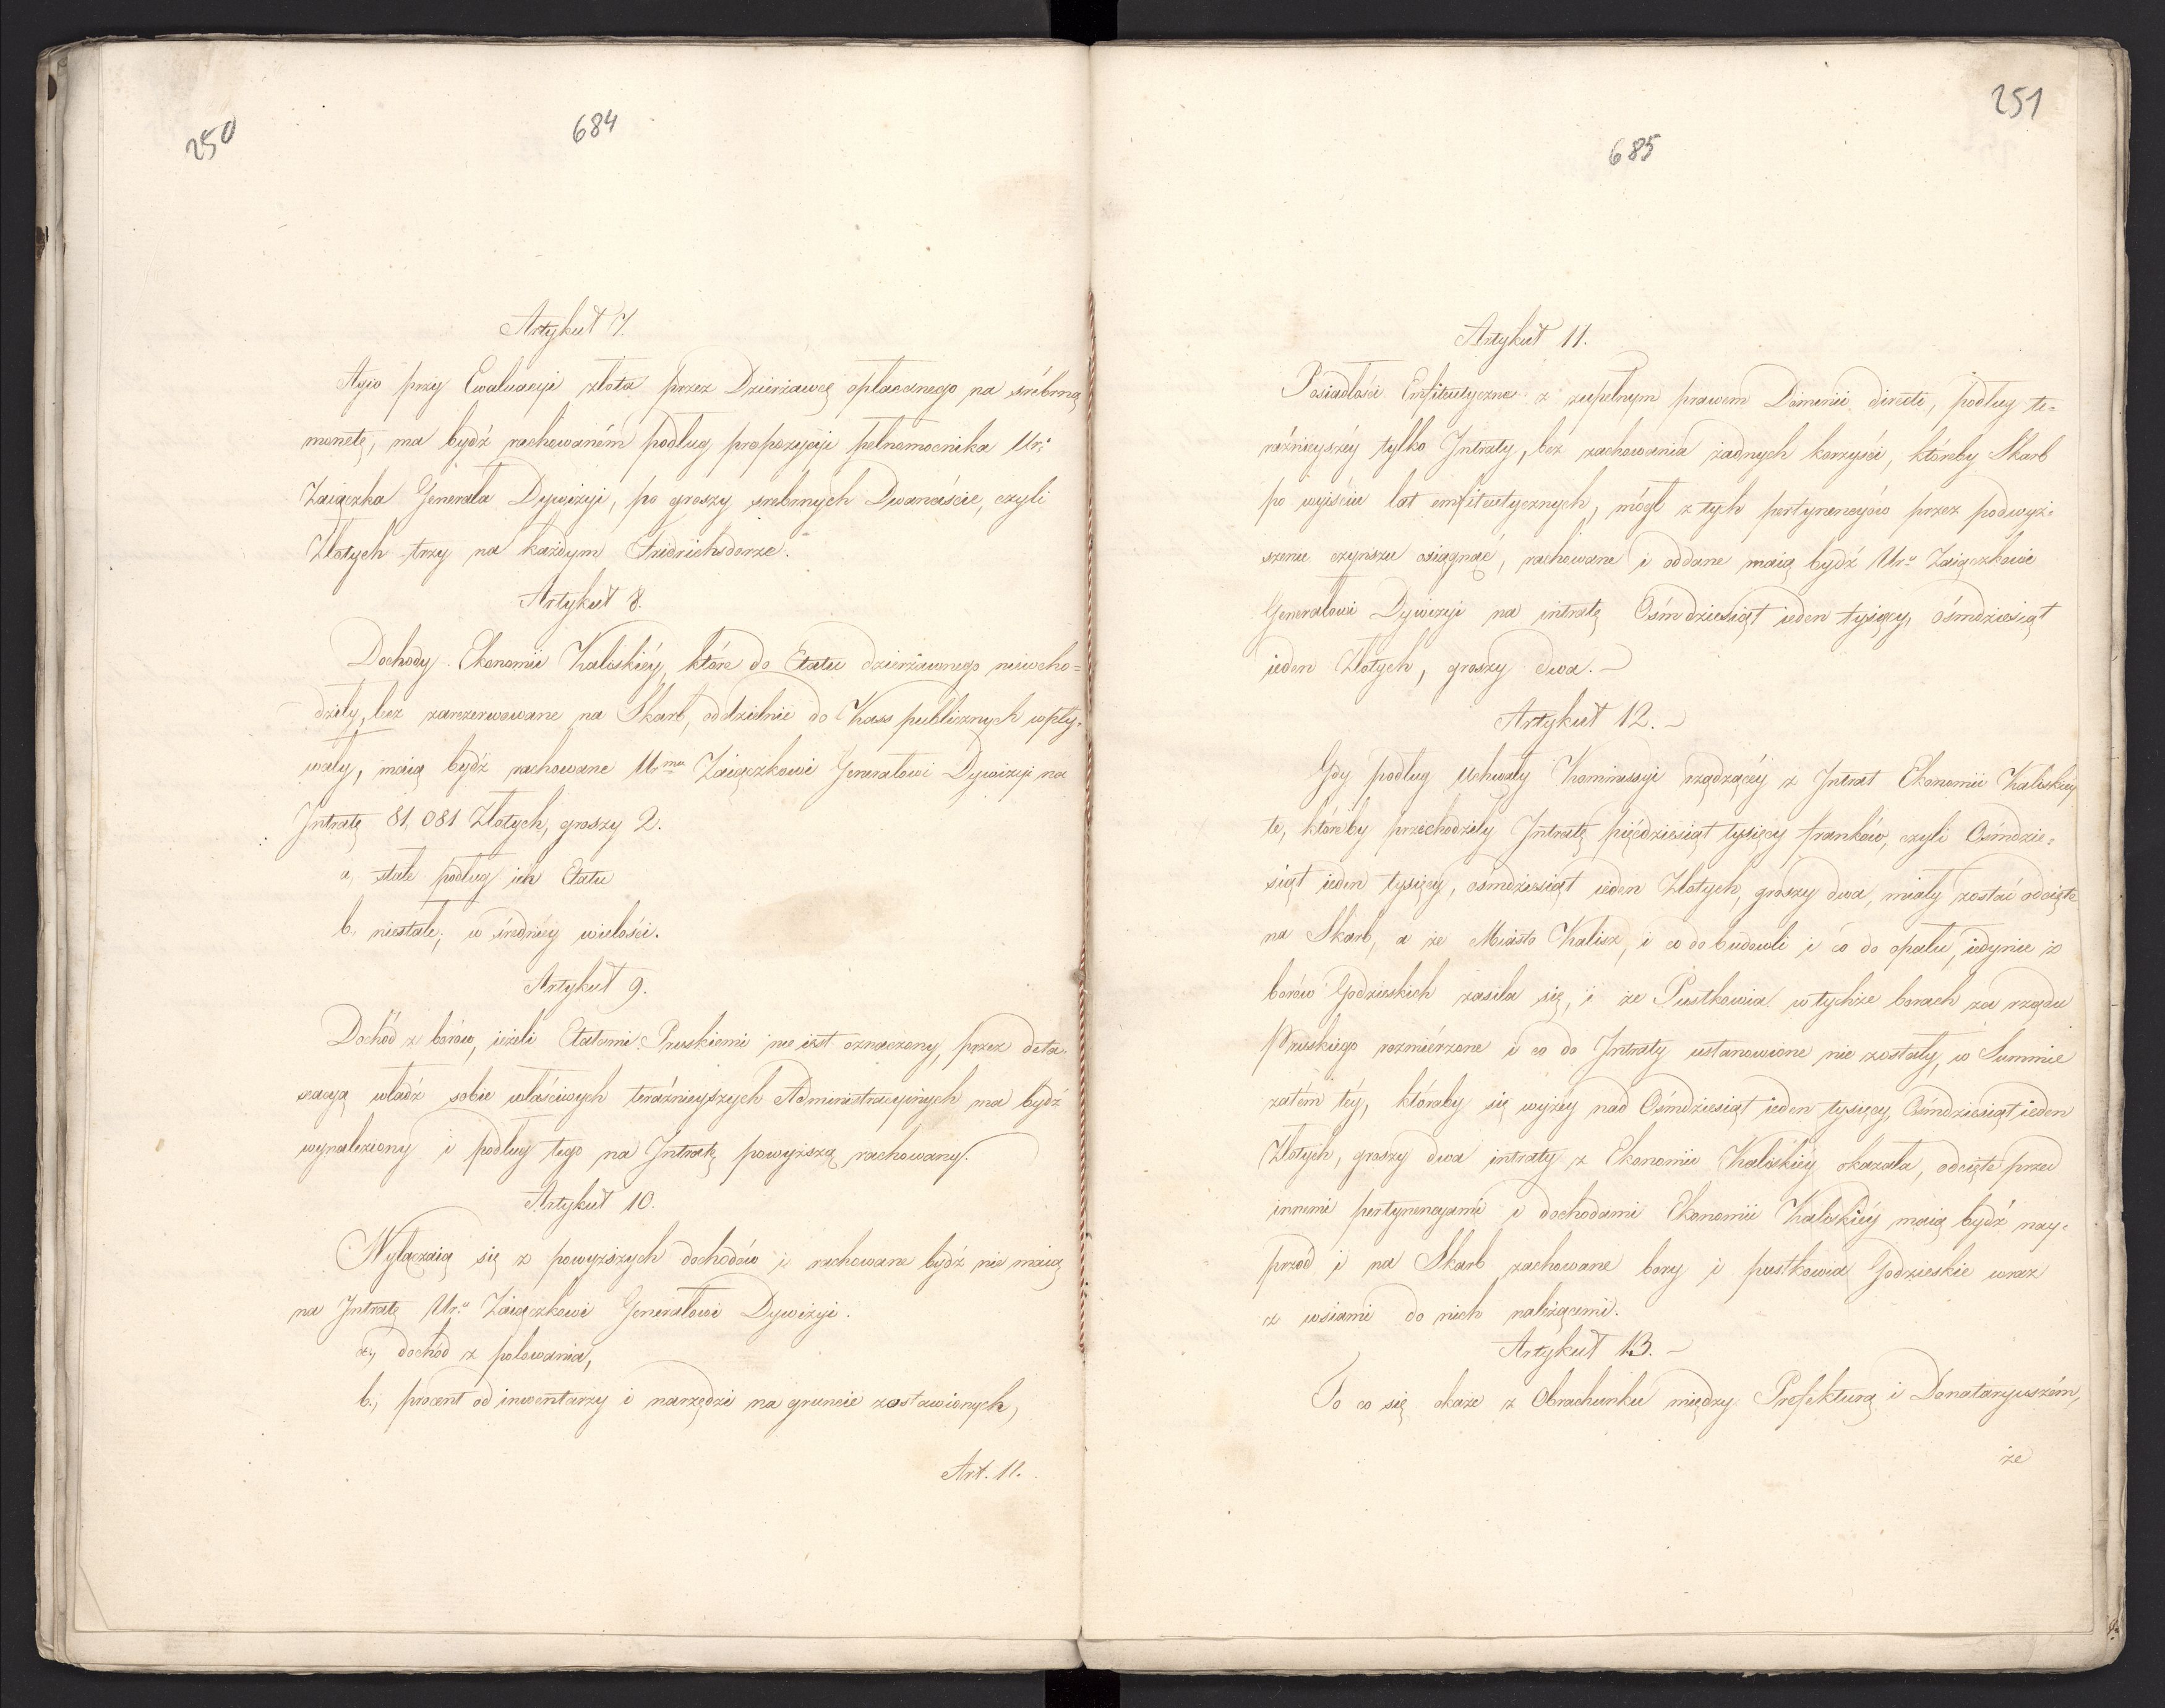 250
684
Artykuł 7.
Agio przy Ewaluacyi złota przez Dzierżawcę opłacanego na śrébrną
monetę, ma bydź rachowaném podług propozycyi pełnomocnika Ur:
Zaiączka Generała Dywizyi, po groszy srebrnych Dwanaście, czyli
Złotych trzy na każdym Fridrichsdorze.
Artykuł 8.
Dochody Ekonomii Kaliskiéy, które do Etatu dzierżawnego niewcho=
dziły, lecz zarezerwowane na Skarb, oddzielnie do Kass publicznych wpły-
wały, maią bydź rachowane Ur:mu Zaiączkowi Generałowi Dywizyi na
Intratę 81,081 Złotych, groszy 2.
a, stałe podług ich Etatu
b, niestałe; w średniéy wielości.
Artykuł 9.
Dochód z borów, ieżeli Etatami Pruskiemi nie iest oznaczony, przez deta-
xacyą władz sobie właściwych teraźnieyszych Administracyinych ma bydź
wynaleziony i podług tego na Intratę powyższą rachowany.
Artykuł 10.
Wyłączaią się z powyższych dochodów i rachowane bydź nie maią
na Intratę Ur:u Zaiączkowi Generałowi Dywizyi.
a, dochód z polowania,
b, procent od inwentarzy i narzędzi na gruncie zostawionych,
Art. 11.
251
685
Artykuł 11.
Posiadłości Emfiteutyczne z zupełnym prawem Dominii directi, podług te=
raźnieyszéy tylko Intraty, bez zachowania żadnych korzyści, któreby Skarb
po wyiściu lat emfiteutycznych, mógł z tych pertynencyów przez podwyż=
szenie czynszu osiągnąć, rachowane i oddane maią bydź Ur:u Zaiączkowi
Generałowi Dywizyi na intratę Ośmdziesiąt ieden tysięcy, ośmdziesiąt
ieden Złotych, groszy dwa.
Artykuł 12.
Gdy podług Uchwały Kommissyi rządzącéy z Intrat Ekonomii Kaliskiéy
te, któreby przechodziły Intratę pięćdziesiąt tysięcy franków, czyli Ośmdzie=
siąt ieden tysięcy, ośmdziesiąt ieden Złotych, groszy dwa, miały zostać odcięte
na Skarb, a że Miasto Kalisz, i co do budowli i co do opału, iedynie z
borów Godzieskich zasila się, i że Pustkowia w tychże borach za rządu
Pruskiego rozmiérzone i co do Intraty ustanowione nie zostały, w Summie
zatém téy, któraby się wyżéy nad Ośmdziesiąt ieden tysięcy, Ośmdziesiąt ieden
Złotych, groszy dwa intraty z Ekonomii Kaliskiéy okazała, odcięte przed
innemi pertynencyami i dochodami Ekonomii Kaliskiéy maią bydź nay=
przód i na Skarb zachowane bory i pustkowia Godzieskie wraz
z wsiami do nich należącemi.
Artykuł 13.
To co się okaże z Obrachunku między Prefekturą i Donataryuszém,
że